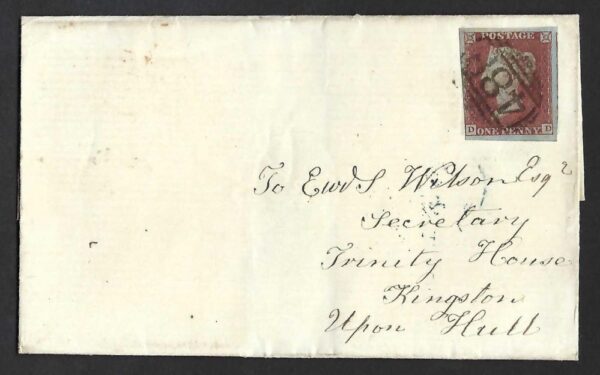 POSTAGE
D ONE PENNY D
To Ewd S. Wilson Esqr
Secretary
Trinity House
Kingston
Upon Hull